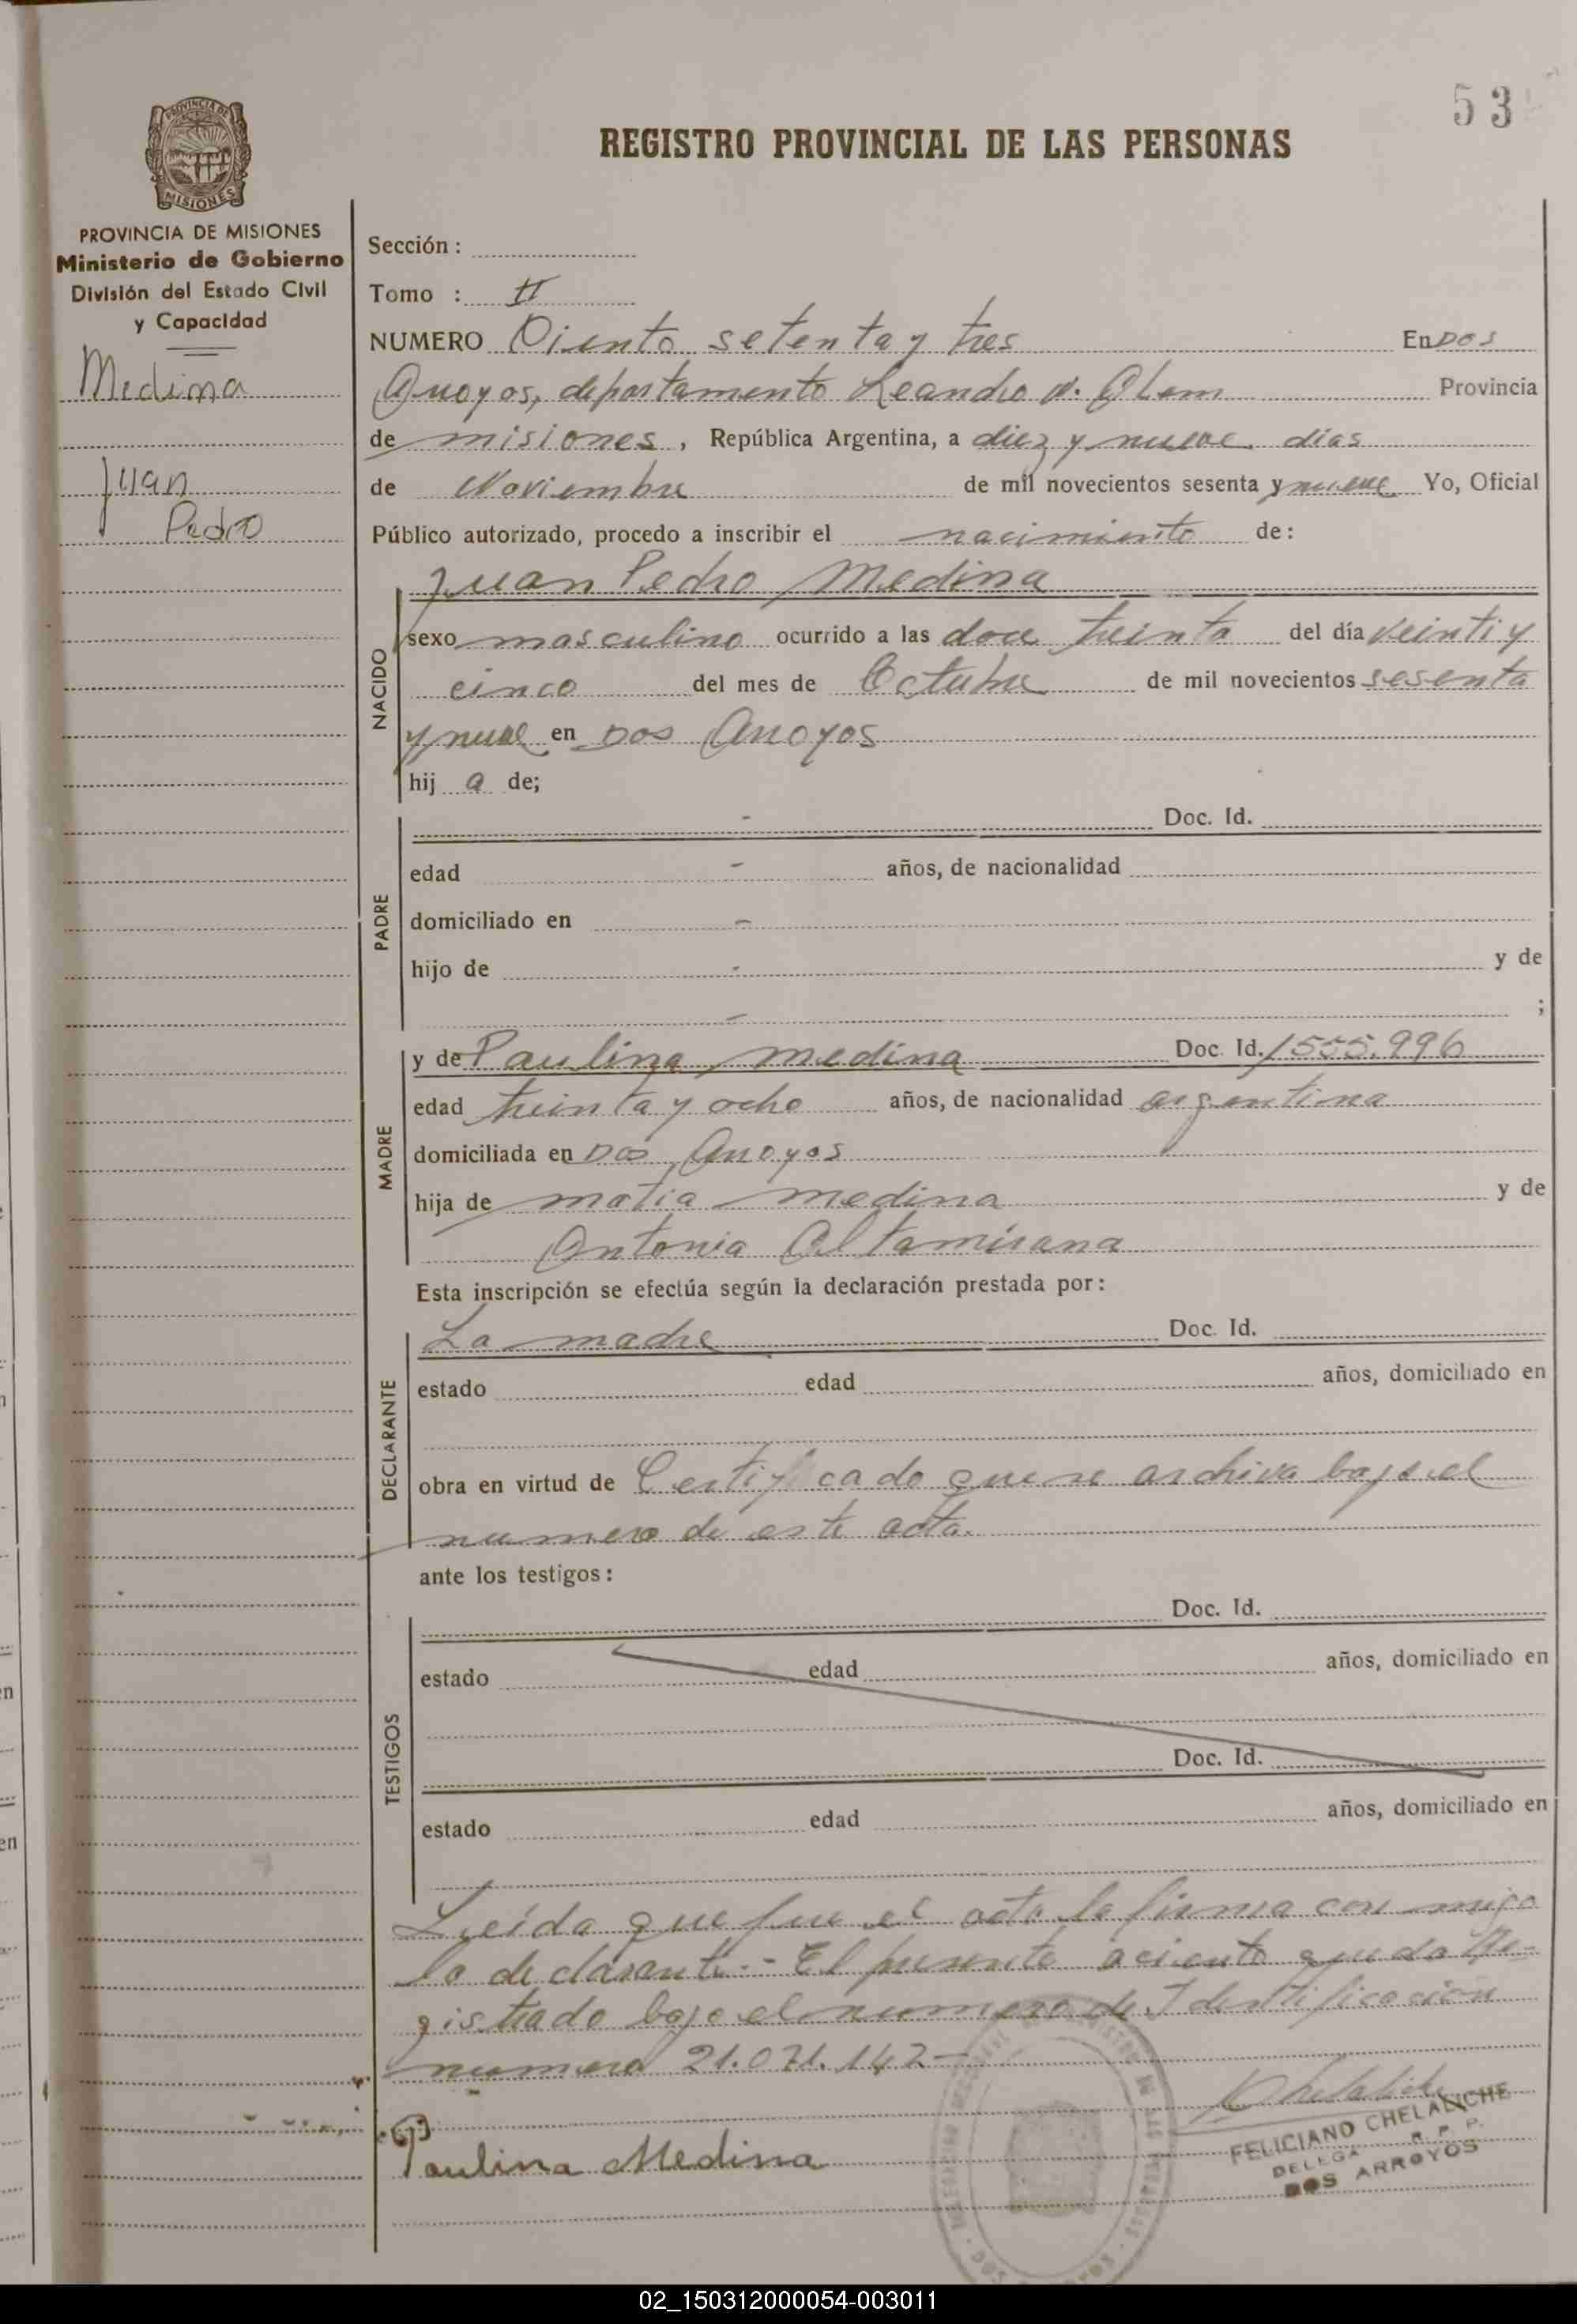 53
REGISTRO PROVINCIAL DE LAS PERSONAS
PROVINCIA DE
MISIONES
PROVINCIA DE MISIONES
Ministerio de Gobierno
División del Estado Civil
y Capacidad
Medina
Juan
Pedro
Sección :
Tomo : II
NUMERO Ciento setenta y tres En Dos
Arroyos, departamento Leandro N. Alem Provincia
de misiones, República Argentina, a diez y nueve días
de Noviembre de mil novecientos sesenta y nueve Yo, Oficial
Público autorizado, procedo a inscribir el nacimiento de:
Juan Pedro Medina
NACIDO
sexo masculino ocurrido a las doce treinta del día veinti y
cinco del mes de Octubre de mil novecientos sesenta
y nueve en Dos Arroyos
hij a de;
PADRE
Doc. Id.
edad - años, de nacionalidad
domiciliado en -
hijo de - y de
- ;
MADRE
y de Paulina Medina Doc. Id. 1555.996
edad treinta y ocho años, de nacionalidad argentina
domiciliada en Dos Arroyos
hija de matia medina y de
Antonia Altamirana
Esta inscripción se efectúa según la declaración prestada por:
DECLARANTE
La madre Doc. Id.
estado edad años, domiciliado en
obra en virtud de Certificado que se archiva bajo el
numero de este acta.
ante los testigos:
TESTIGOS
Doc. Id.
estado edad años, domiciliado en
Doc. Id.
estado edad años, domiciliado en
Leída que fue el acta la firma con migo
la declarante.- El presente aciento queda Re-
gistrado bajo el numero de Identificación
numero 21.071.142-
Paulina Medina
FELICIANO CHELALICHE
DELEGA R. P. P.
DOS ARROYOS
02_150312000054-003011